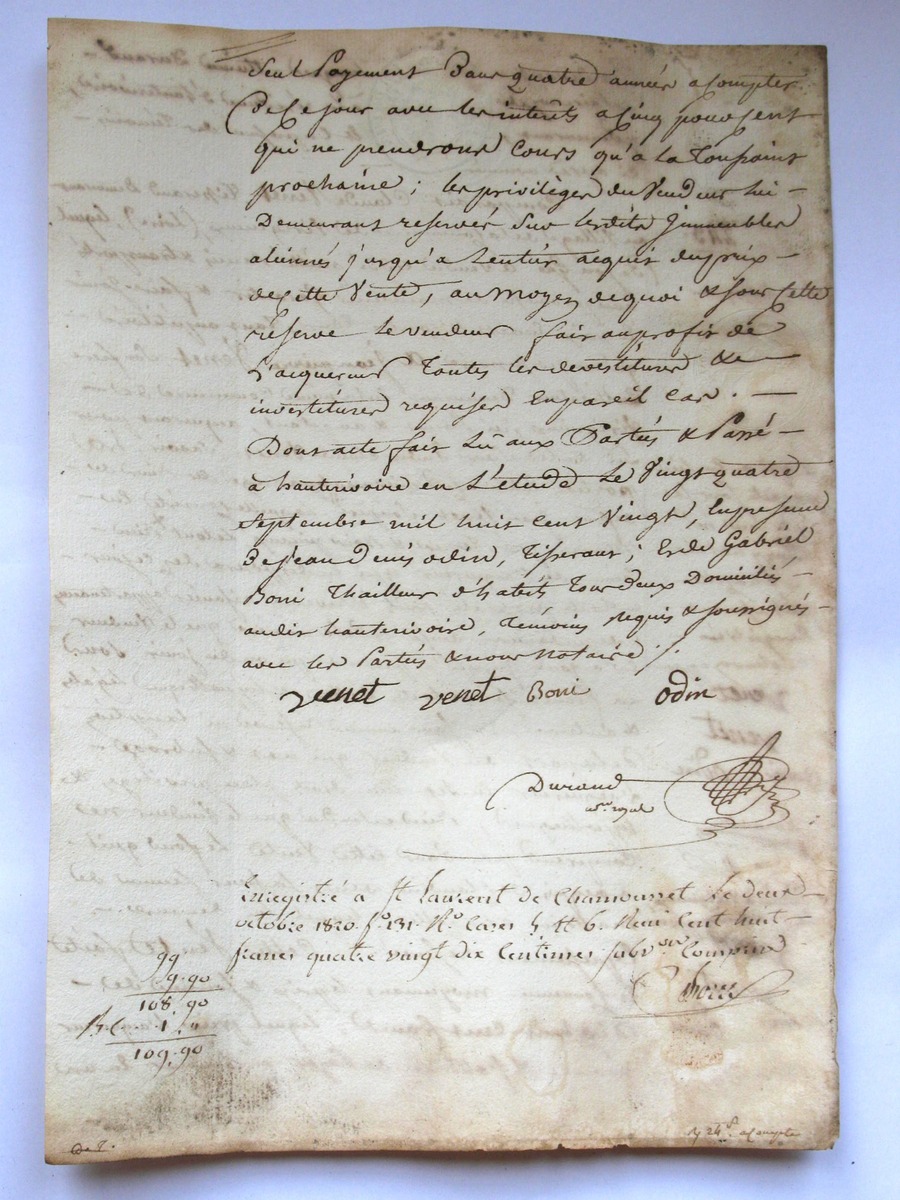 Seul Payement Dans quatre année a Compter
De Ce jour avec les interêts a Cinq pour Cent
qui ne prendront Cours qu'à la Toussaint
prochaine ; les privilèges du Vendeur lui
Demeurant reservés sur lesdits Immeubles
aliennés jusqu'a Lentier acquit du prix
de cette Vente, au moyen de quoi & sous Cette
réserve le vendeur fait au profit de
L'acquereur Toutes les devestitures &
investitures requises En pareil cas.
Dont acte fait Lû aux Parties & Passé
à hauterivoire en L'étude Le Vingt quatre
septembre mil huit cent Vingt, En presence
De Jean Denis odin, Tisserant ; Et de Gabriel
Boni Thailleur d'habits Tous Deux Domiciliés
audit hauterivoire, Témoins requis & soussignés
avec les Parties & nous Notaire ./.
venet venet Boni odin
Durand
nre royal
Enregistré a St Laurent de Chamousset le deux
octobre 1820. fo. 131. Ro. Cases 5 & 6. Reçu Cent huit
francs quatre vingt dix Centimes subvon Comprise
99
9.90
108.90
1.
109.90